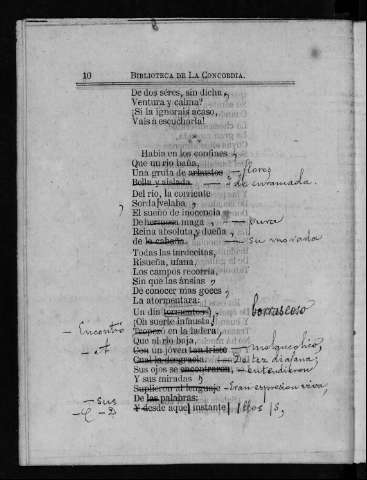 10 BIBLIOTECA DE LA CONCORDIA.
De dos séres, sin dicha,
Ventura y calma?
¡Si la ignorais acaso,
Vais á escucharla!
Habia en los confines,
Que un rio baña,
Una gruta de arbustos — flores
Bella y aislada — y de enramada.
Del rio, la corriente
Sorda velaba,
El sueño de inocencia
De hermosa maga, — pura
Reina absoluta y dueña,
de la cabaña. — su morada
Todas las tardecitas,
Risueña, ufana,
Los campos recorria,
Sin que las ánsias
De conocer mas goces,
La atormentara:
Un dia tormentoso, borrascoso
¡Oh suerte infausta!
— Encontró Tropezó en la ladera,
Que al rio baja,
— A Con un joven tan triste — melancólico,
Cual la desgracia. De tez diafana;
Sus ojos se encontraron, — entendieron
Y sus miradas,
Suplieron al lenguaje — Eran expresion viva,
— sus De las palabras:
— D Y desde aquel instante, ellos